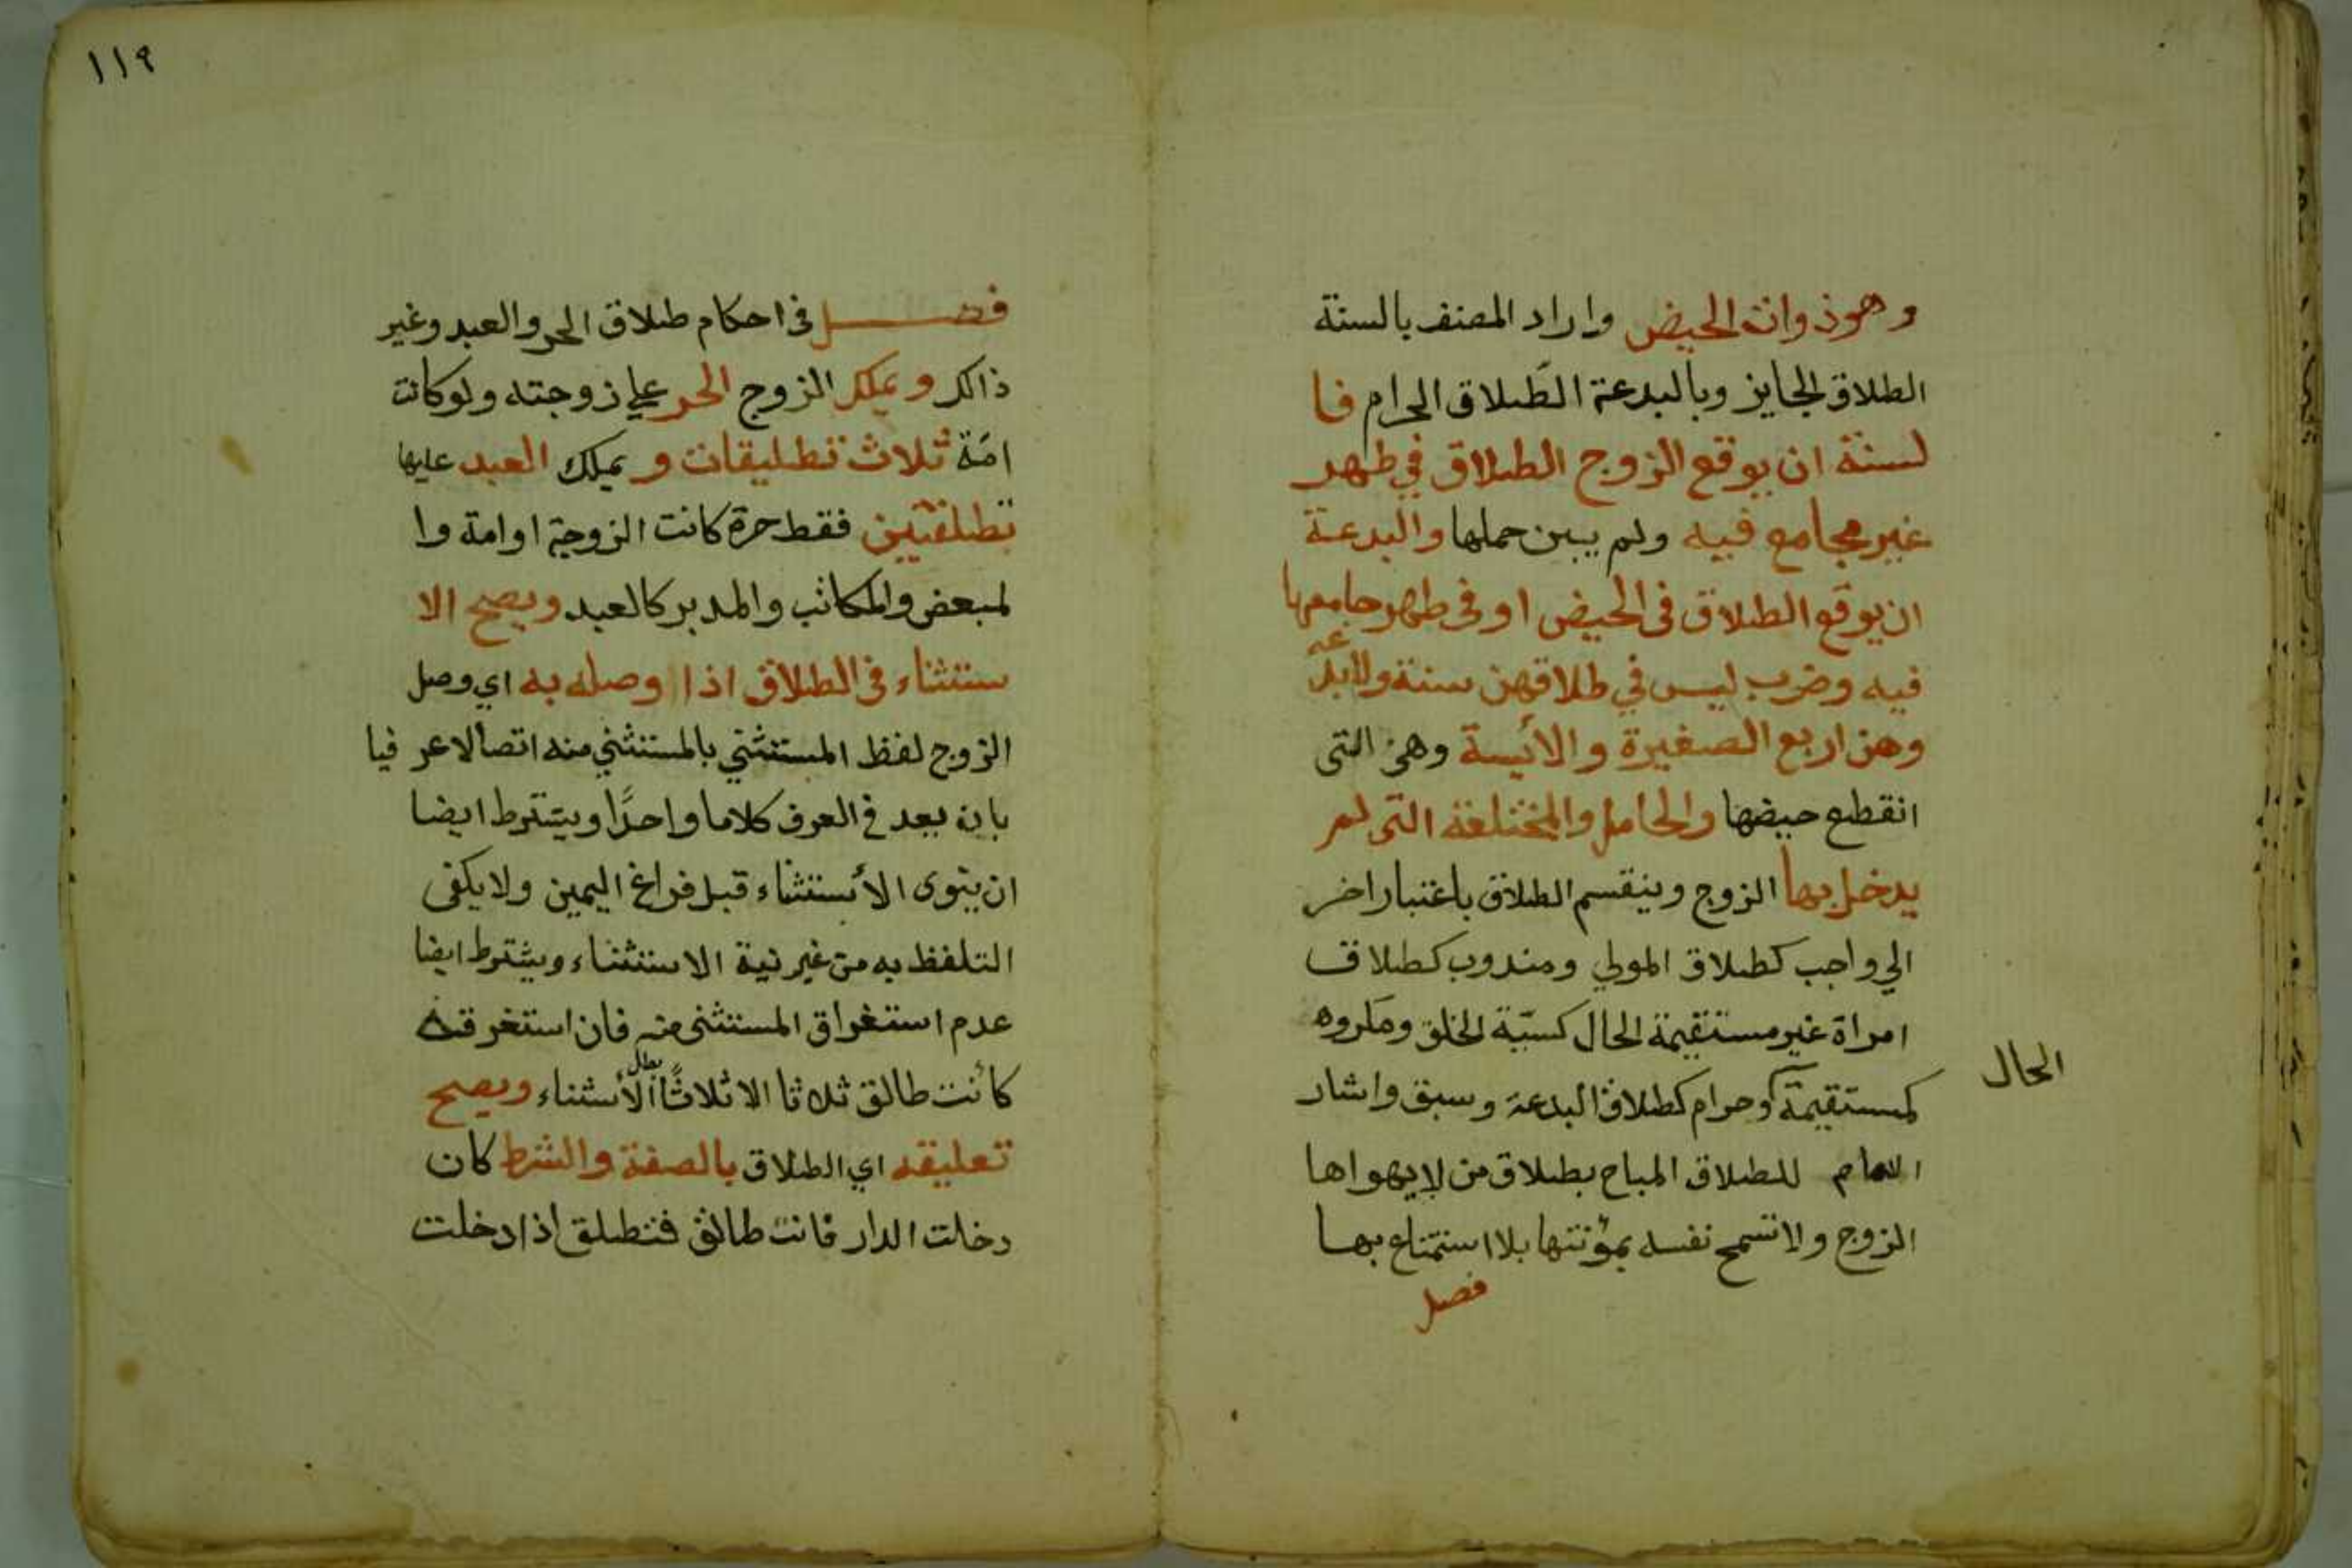 وهو ذوات الحيض واراد المصنف بالسنة
الطلاق الجايز وبالبدعة الطلاق الحرام فا
لسنة ان يوقع الزوج الطلاق في طهر
غير مجامع فيه ولم يبين حملها والبدعة
ان يوقع الطلاق فى الحيض او فى طهر جامعها
فيه وضرب ليس في طلاقهن سنة ولا بدعه
وهن اربع الصغيرة والأيسة وهى التى
انقطع حيضها والحامل والمختلعة التى لم
يدخل بها الزوج وينقسم الطلاق باعتبار اخر
الي واجب كطلاق المولي ومندوب كطلاق
امراة غير مستقيمة الحال كسيّة الخلق ومكروه
كمستقيمة وحرام كطلاق البدعة وسبق واشار
الحال
الامام للطلاق المباح بطلاق من لا يهواها
الزوج ولا تسمح نفسه بمؤنتها بلا استمتاع بها
فصل
١١٩
فصل فى احكام طلاق الحر والعبد وغير
ذالك ويملك الزوج الحر علي زوجته ولو كانت
امَة ثلاث تطليقات و يملك العبد عليها
تطلقتين فقط حرة كانت الزوجة او امة وا
لمبعض والمكاتب والمدبر كالعبد ويصح الا
ستثناء فى الطلاق اذا وصله به اي وصل
الزوج لفظ المستثني بالمستثني منه اتصالا عر فيا
بان يعد في العرف كلاما واحدًا ويشترط ايضا
ان ينوى الأستثناء قبل فراغ اليمين ولا يكفى
التلفظ به من غير نية الاستثناء ويشترط ايضا
عدم استغراق المستثنى منه فان استغرقه
كأنت طالق ثلاثا الا ثلاثًا بطل الأستثناء ويصح
تعليقه اي الطلاق بالصفة والشرط كان
دخلت الدار فانت طالق فتطلق اذا دخلت